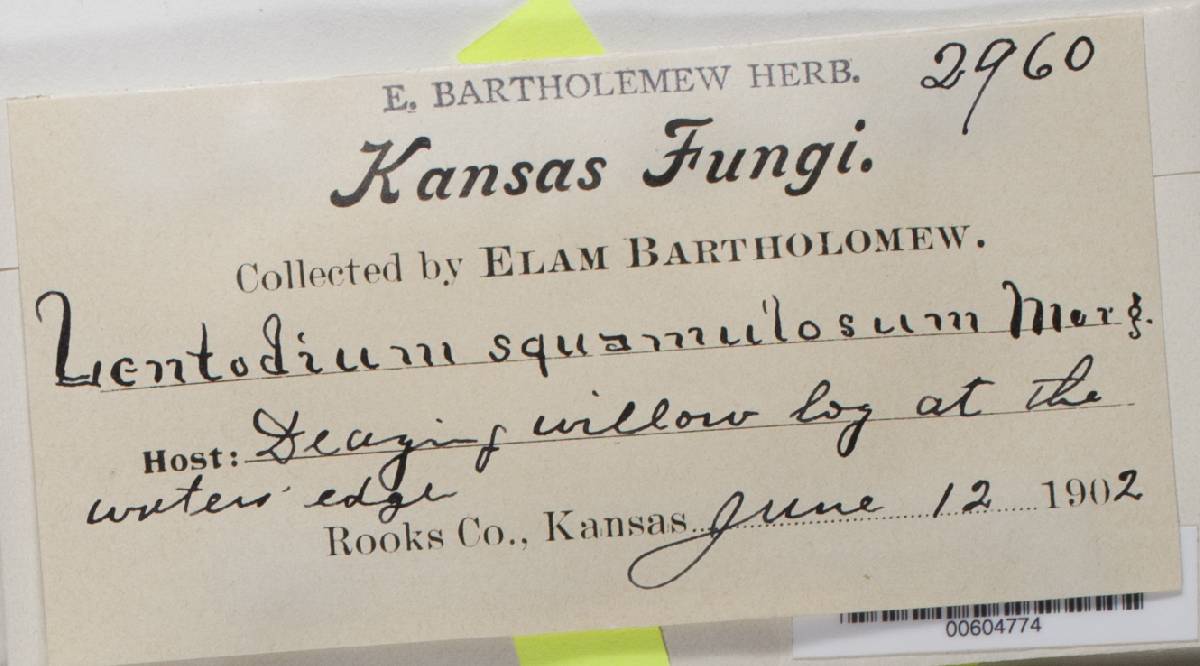 E. BARTHOLEMEW HERB. 2960
Kansas Fungi.
Collected by ELAM BARTHOLOMEW.
Lentodium squamulosum Morg.
Host: Decaying willow log at the
waters' edge
Rooks Co., Kansas June 12 1902
00604774